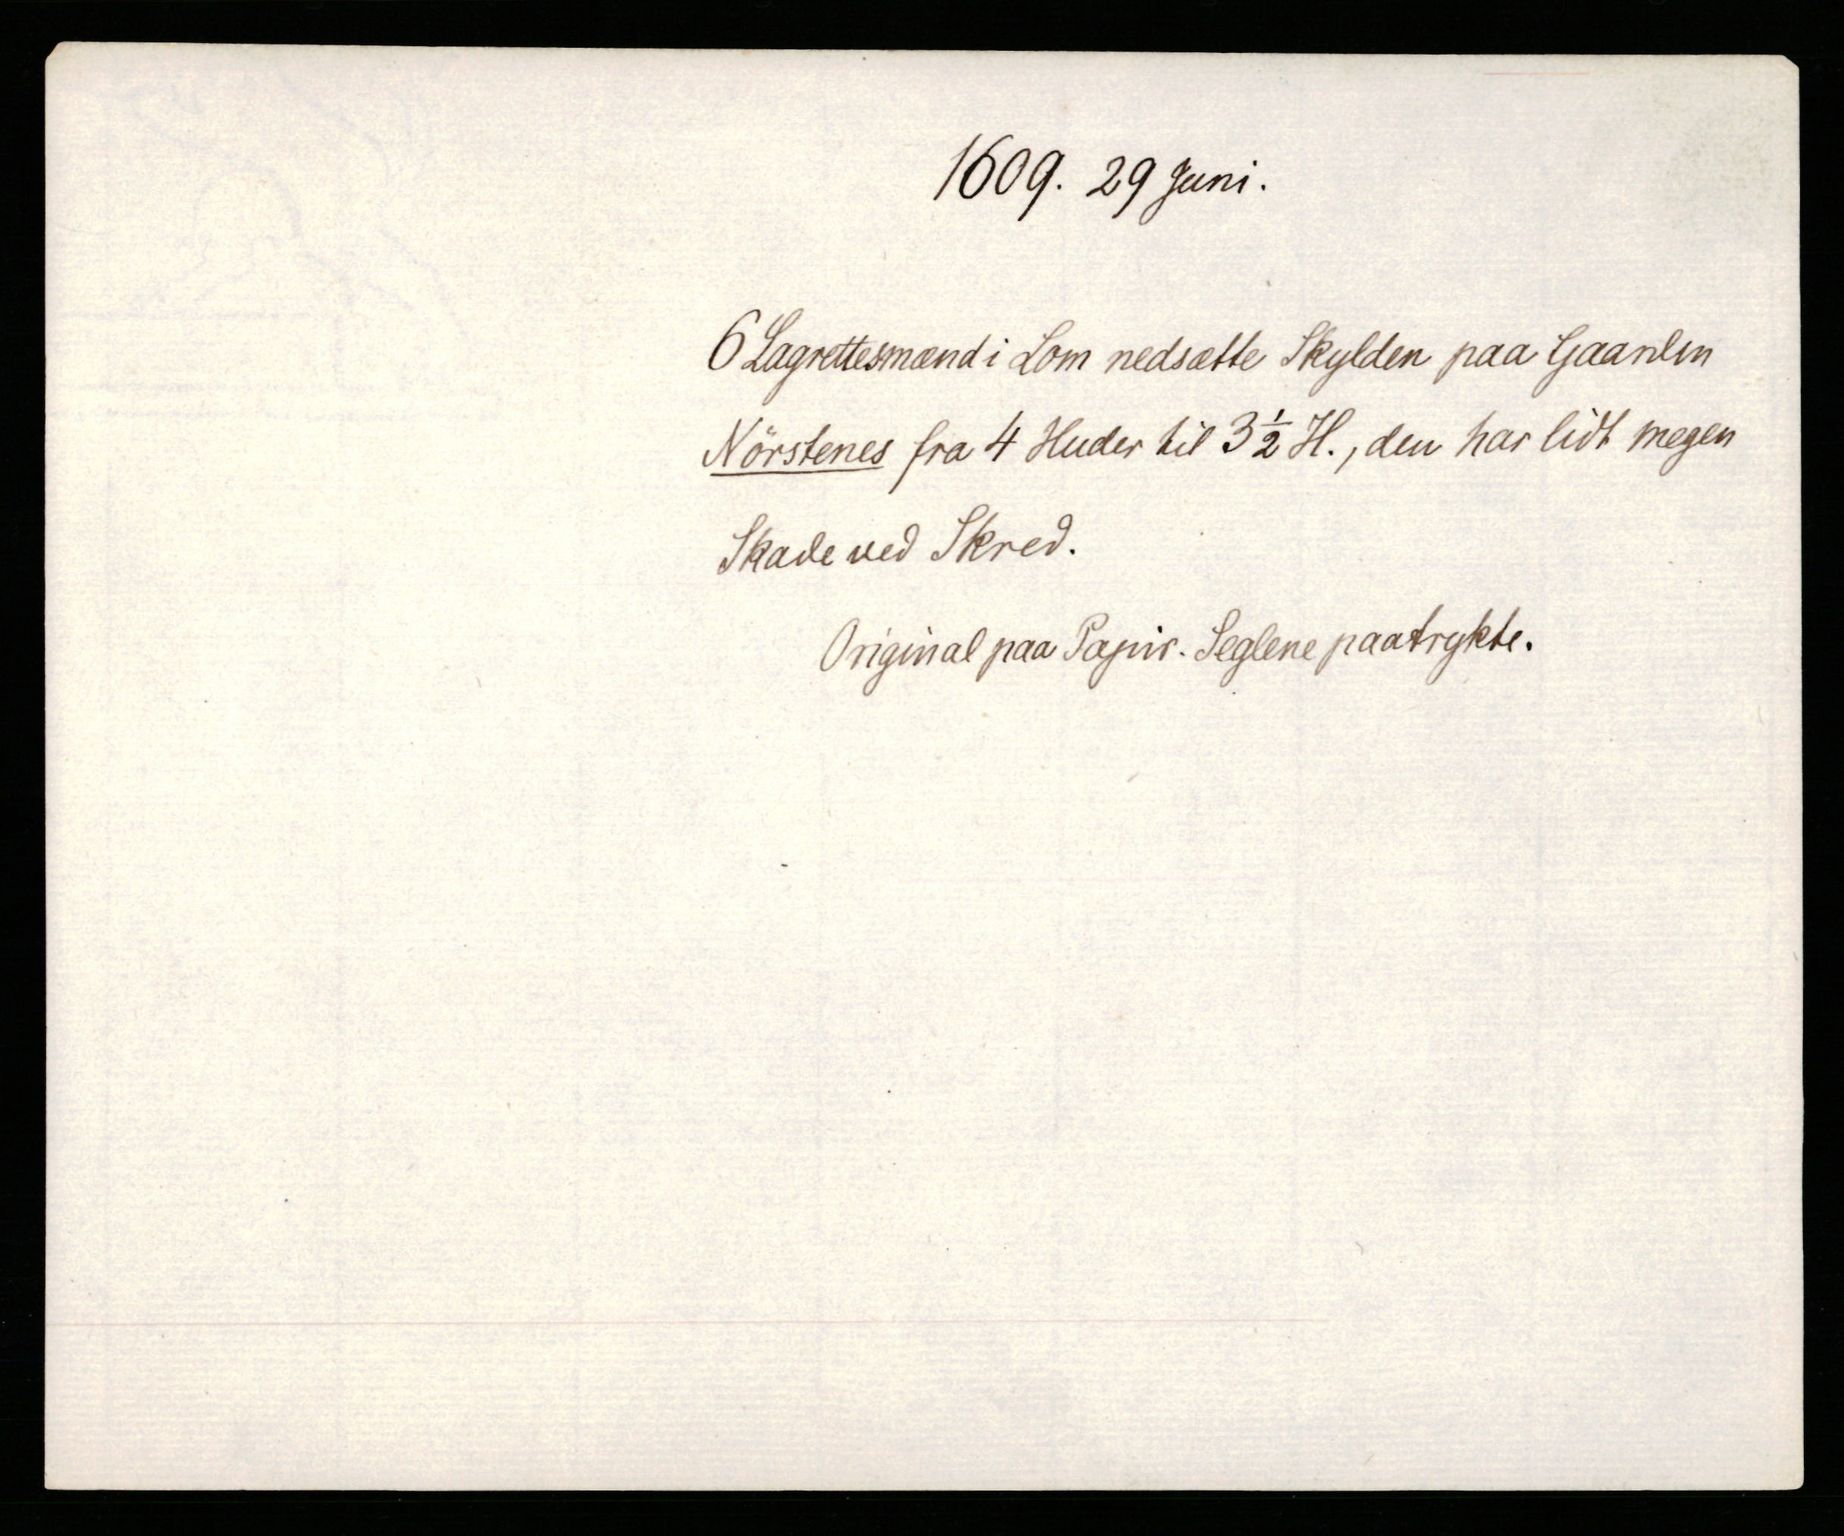 1609. 29 Juni.
6 Lagrettesmænd i Lom nedsætte Skylden paa Gaarden
Nörstenes fra 4 Huder til 3 1/2 H., den har lidt megen
Skade ved Skred.
Original paa Papir. Seglene paatrykte.